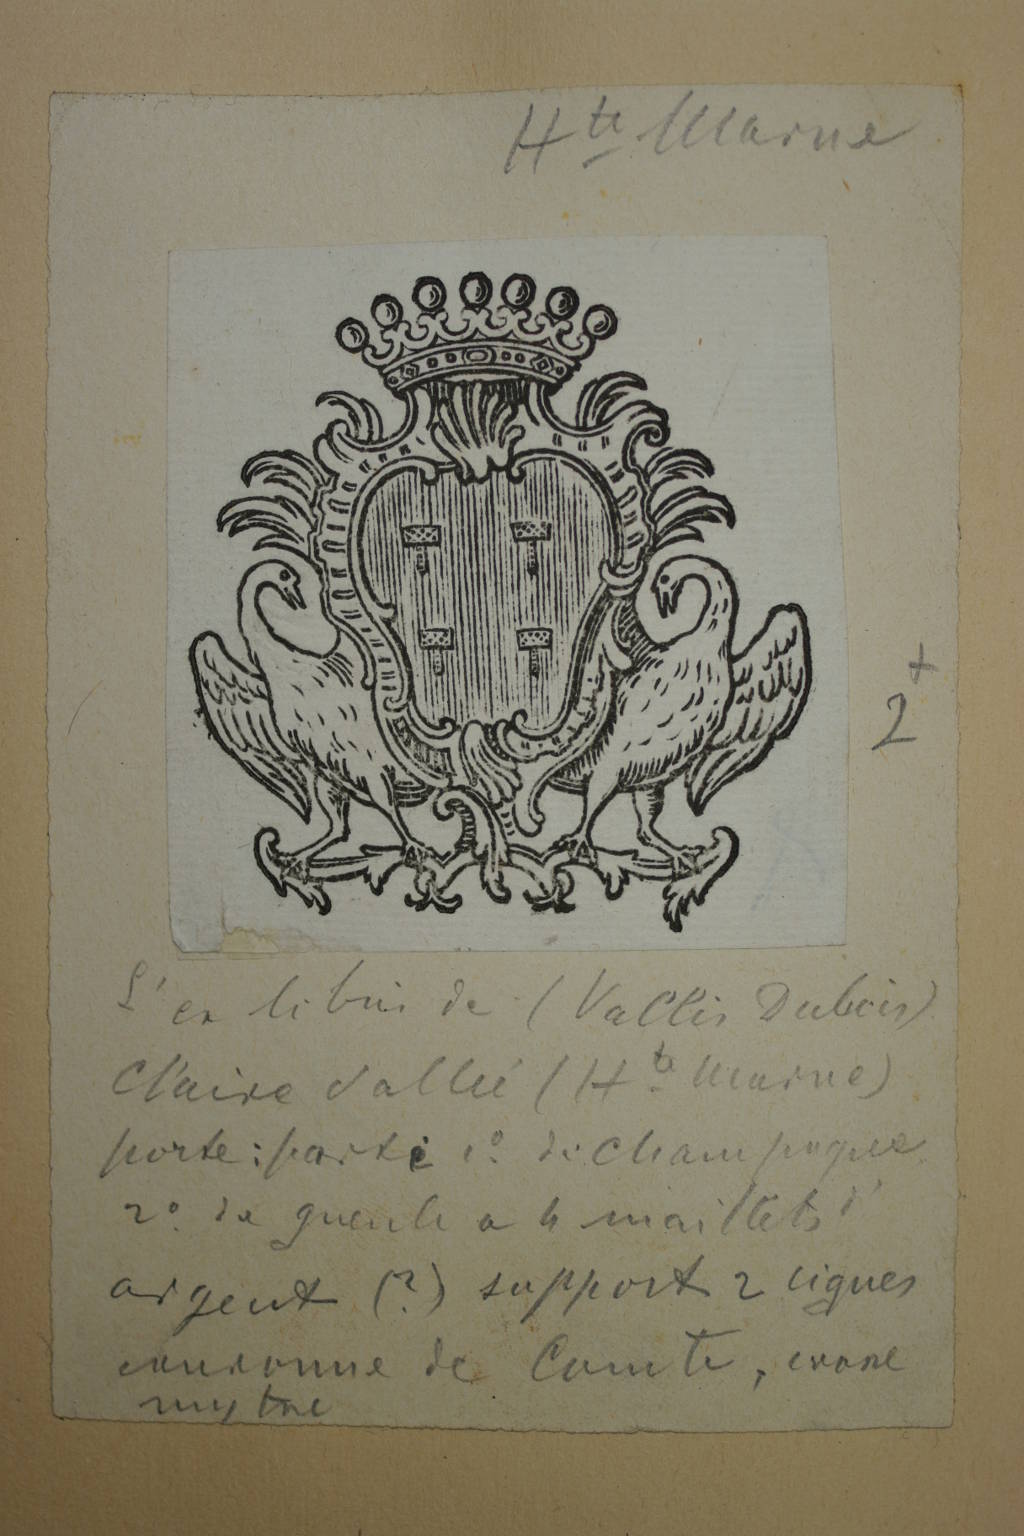 Hte Marne
2+
L'ex libris de (Vallis Dubois)
Claire Vallée (Hte Marne)
porte : parti 1º. de Champagne
2º. de gueule a 4 maillets d'
argent (?) support 2 cignes
couronne de Comte, crosse
mytre